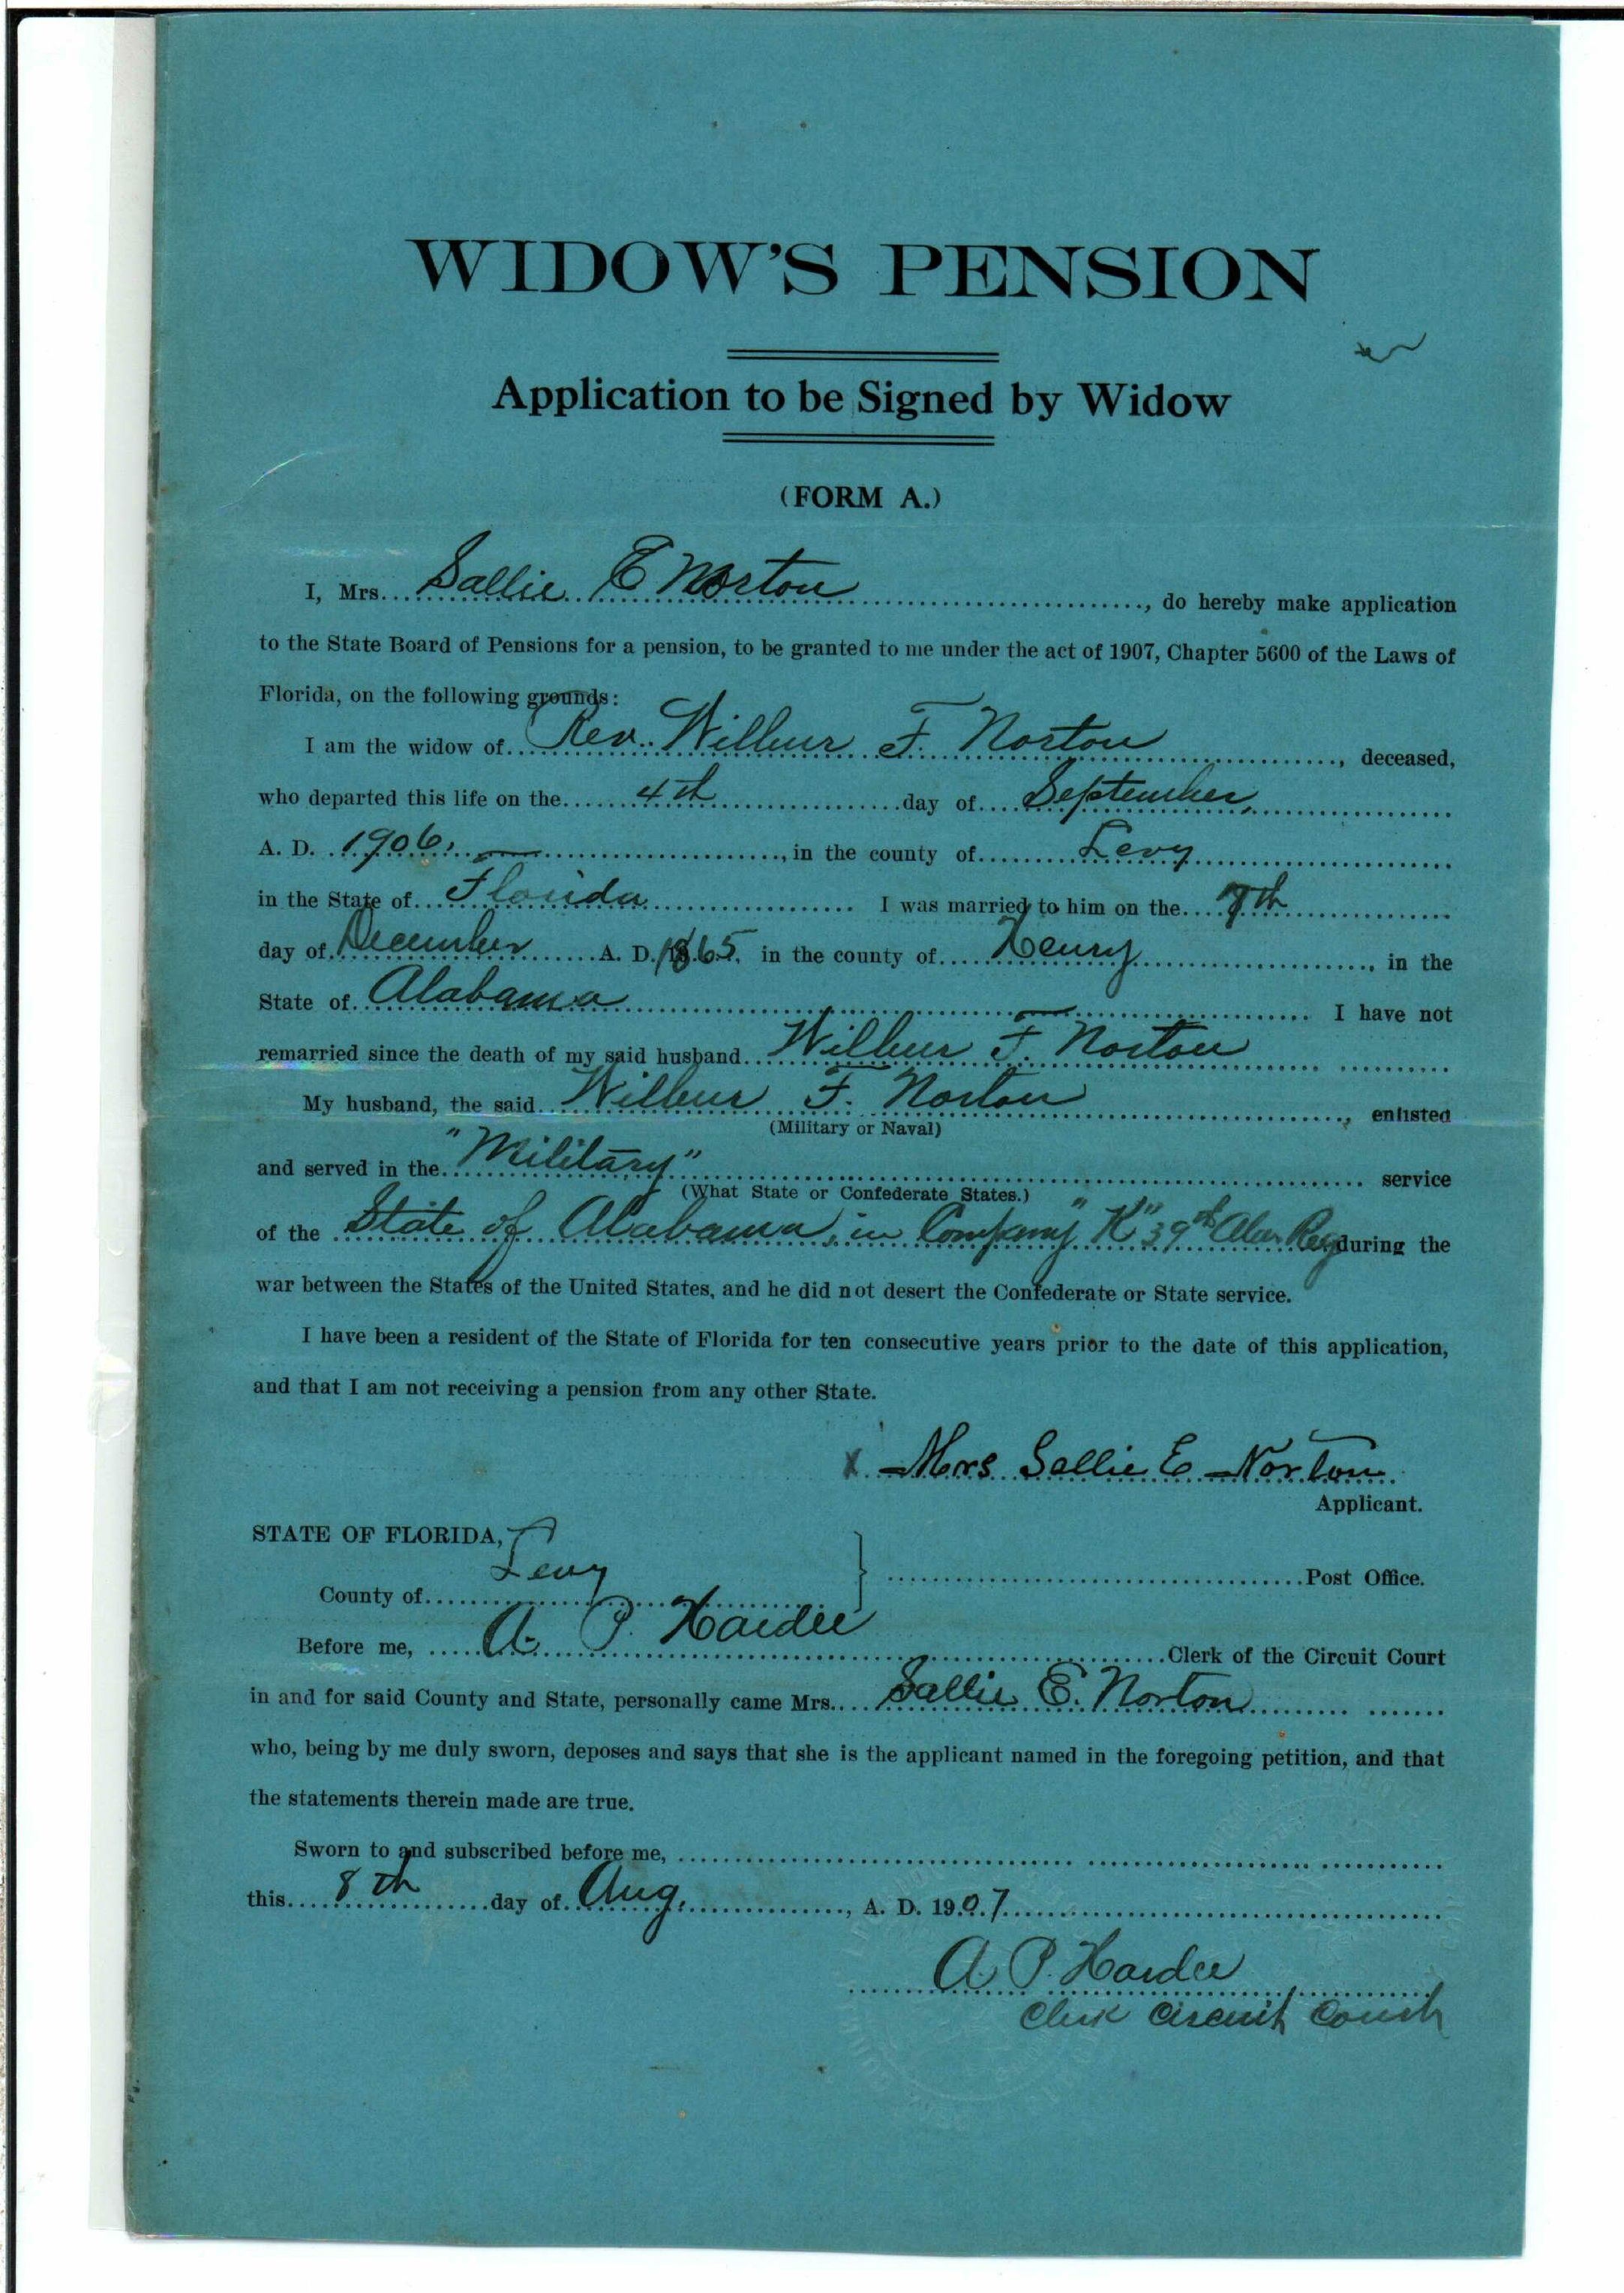 WIDOW'S PENSION
Application to be Signed by Widow
(FORM A.)
I, Mrs. Sallie E Norton, do hereby make application
to the State Board of Pensions for a pension, to be granted to me under the act of 1907, Chapter 5600 of the Laws of
Florida, on the following grounds:
I am the widow of Rev. Wilbur F. Norton, deceased,
who departed this life on the 4th day of September,
A. D. 1906, in the county of Levy
in the State of Florida I was married to him on the 7th
day of December A. D. 1865, in the county of Henry, in the
State of Alabama I have not
remarried since the death of my said husband Wilbur F. Norton
My husband, the said Wilbur F. Norton, enlisted
(Military or Naval)
and served in the "Military" service
(What State or Confederate States.)
of the State of Alabama, in Company "K" 39th Ala Reg during the
war between the States of the United States, and he did not desert the Confederate or State service.
I have been a resident of the State of Florida for ten consecutive years prior to the date of this application,
and that I am not receiving a pension from any other State.
X Mrs Sallie E Norton
Applicant.
STATE OF FLORIDA,
County of Levy
Post Office.
Before me, A. P. Hardee Clerk of the Circuit Court
in and for said County and State, personally came Mrs. Sallie E. Norton
who, being by me duly sworn, deposes and says that she is the applicant named in the foregoing petition, and that
the statements therein made are true.
Sworn to and subscribed before me,
this 8th day of Aug, A. D. 1907
A. P. Hardee
Clerk Circuit Court